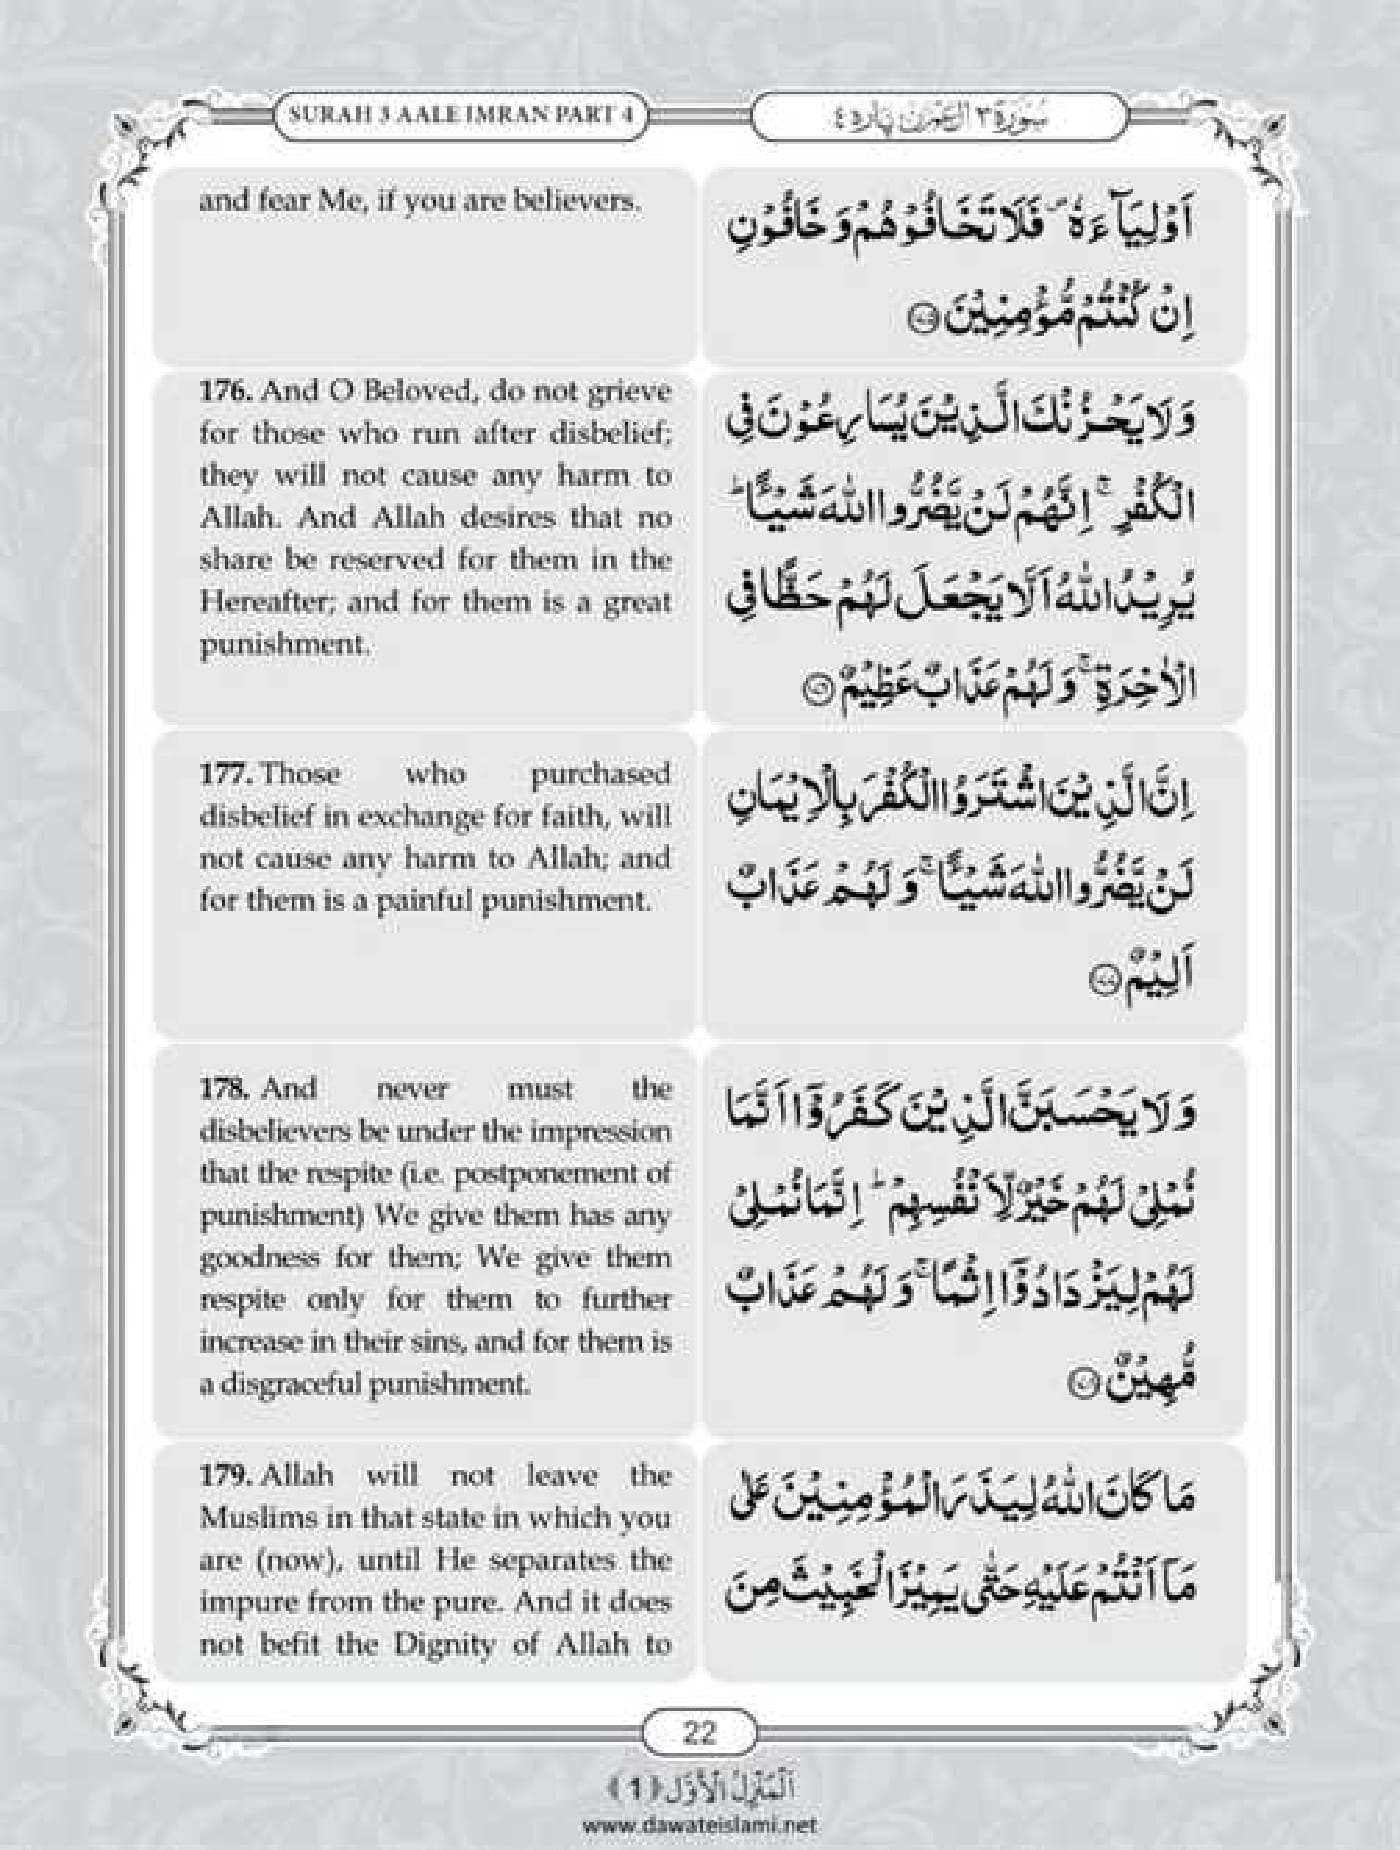 SURAH 3 AALE IMRAN PART 4
سُوْرَةُ ٣ اٰل عِمْرٰن پارہ ٤
and fear Me, if you are believers.
اَوْلِيَآءَهٗ ۪ فَلَا تَخَافُوْهُمْ وَ خَافُوْنِ
اِنْ كُنْتُمْ مُّؤْمِنِيْنَ ﴿۱۷۵﴾
176. And O Beloved, do not grieve
for those who run after disbelief;
they will not cause any harm to
Allah. And Allah desires that no
share be reserved for them in the
Hereafter; and for them is a great
punishment.
وَ لَا يَحْزُنْكَ الَّذِيْنَ يُسَارِعُوْنَ فِي
الْكُفْرِ ۚ اِنَّهُمْ لَنْ يَّضُرُّوا اللّٰهَ شَيْـًٔا ؕ
يُرِيْدُ اللّٰهُ اَلَّا يَجْعَلَ لَهُمْ حَظًّا فِي
الْاٰخِرَةِ ۚ وَ لَهُمْ عَذَابٌ عَظِيْمٌ ﴿۱۷۶﴾
177. Those who purchased
disbelief in exchange for faith, will
not cause any harm to Allah; and
for them is a painful punishment.
اِنَّ الَّذِيْنَ اشْتَرَوُا الْكُفْرَ بِالْاِيْمَانِ
لَنْ يَّضُرُّوا اللّٰهَ شَيْـًٔا ۚ وَ لَهُمْ عَذَابٌ
اَلِيْمٌ ﴿۱۷۷﴾
178. And never must the
disbelievers be under the impression
that the respite (i.e. postponement of
punishment) We give them has any
goodness for them; We give them
respite only for them to further
increase in their sins, and for them is
a disgraceful punishment.
وَ لَا يَحْسَبَنَّ الَّذِيْنَ كَفَرُوْۤا اَنَّمَا
نُمْلِيْ لَهُمْ خَيْرٌ لِّاَنْفُسِهِمْ ؕ اِنَّمَا نُمْلِيْ
لَهُمْ لِيَزْدَادُوْۤا اِثْمًا ۚ وَ لَهُمْ عَذَابٌ
مُّهِيْنٌ ﴿۱۷۸﴾
179. Allah will not leave the
Muslims in that state in which you
are (now), until He separates the
impure from the pure. And it does
not befit the Dignity of Allah to
مَا كَانَ اللّٰهُ لِيَذَرَ الْمُؤْمِنِيْنَ عَلٰى
مَاۤ اَنْتُمْ عَلَيْهِ حَتّٰى يَمِيْزَ الْخَبِيْثَ مِنَ
22
اَلْمَنْزِلُ الْاَوَّل ﴿1﴾
www.dawateislami.net